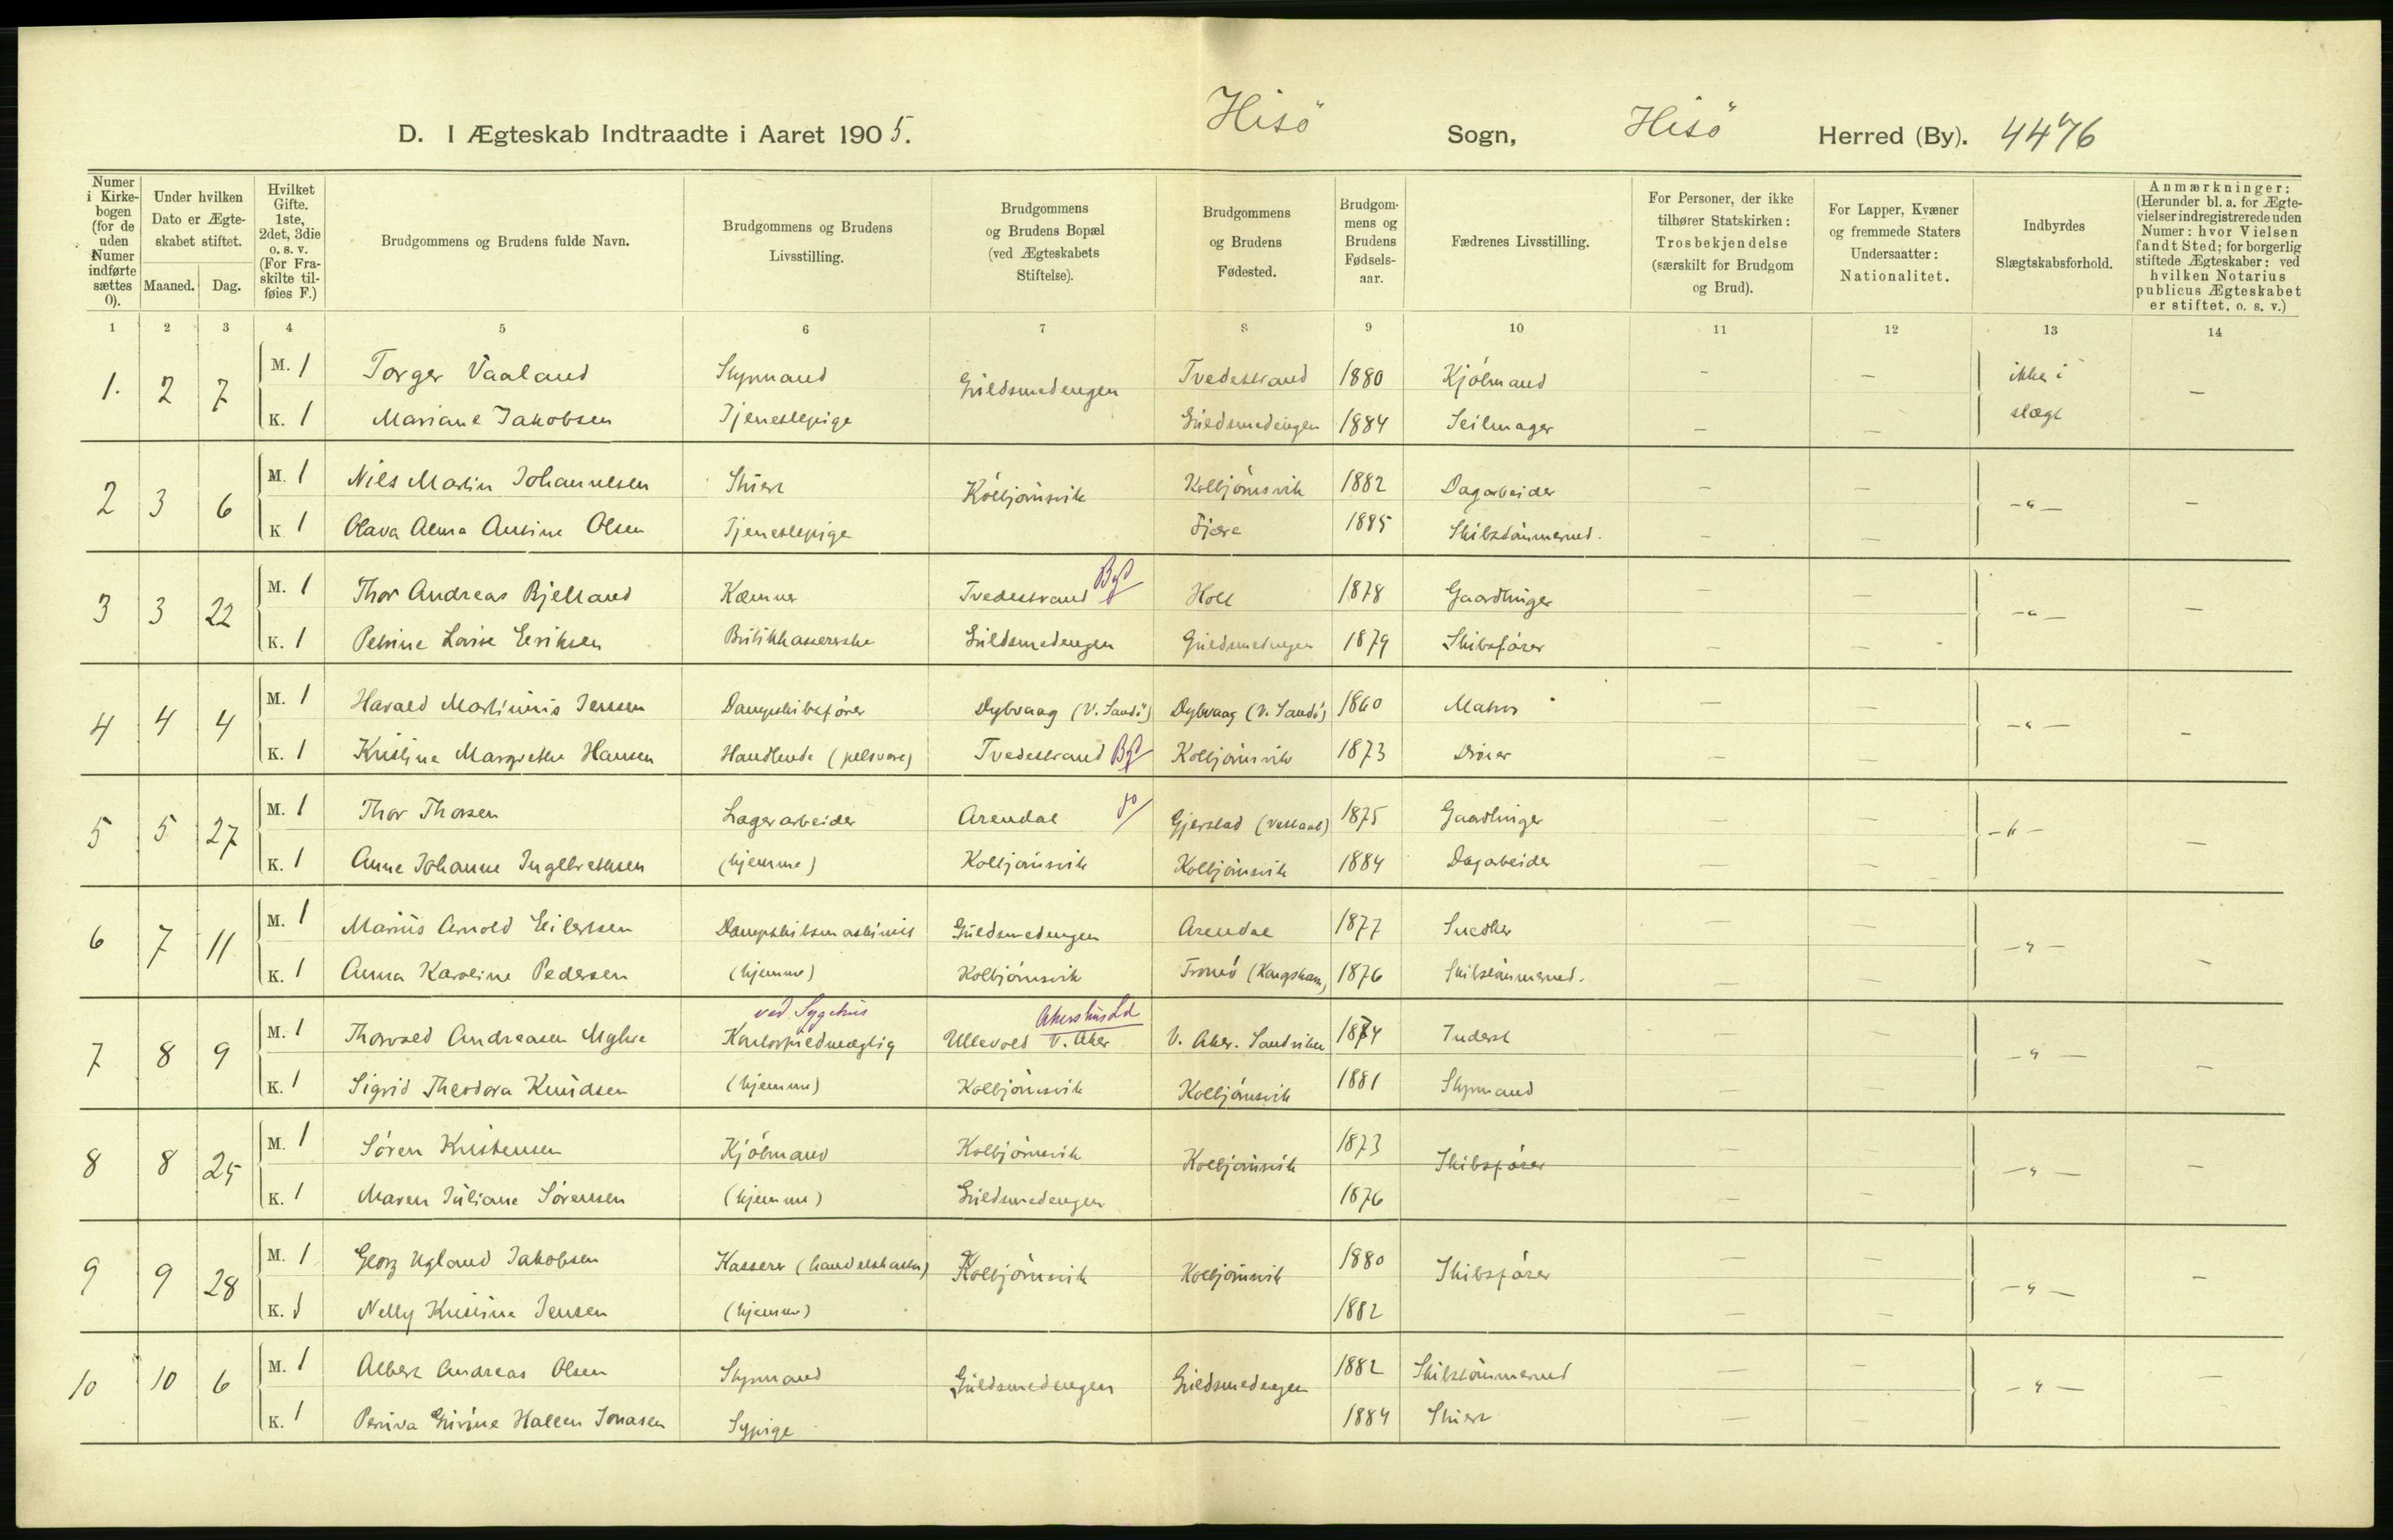 Hisö Hisö 4476
D. I Ægteskab Indtraadte i Aaret 1905. Sogn, Herred (By).
Numer i Kirkebogen (for de uden Numer indførte sættes 0).
Under hvilken Dato er Ægteskabet stiftet.
Maaned. Dag.
Hvilket Gifte. 1ste, 2det, 3die o. s. v. (For Fraskilte tilføies F.)
Brudgommens og Brudens fulde Navn.
Brudgommens og Brudens Livsstilling.
Brudgommens og Brudens Bopæl (ved Ægteskabets Stiftelse).
Brudgommens og Brudens Fødested.
Brudgommens og Brudens Fødselsaar.
Fædrenes Livsstilling.
For Personer, der ikke tilhører Statskirken: Trosbekjendelse (særskilt for Brudgom og Brud).
For Lapper, Kvæner og fremmede Staters Undersaatter: Nationalitet.
Indbyrdes Slægtskabsforhold.
Anmærkninger: (Herunder bl. a. for Ægtevielser indregistrerede uden Numer: hvor Vielsen fandt Sted; for borgerlig stiftede Ægteskaber: ved hvilken Notarius publicus Ægteskabet er stiftet, o. s. v.)
1 2 3 4 5 6 7 8 9 10 11 12 13 14
1. 2 7 M. 1 Torger Vaaland Styrmand Guldsmedengen Tvedestrand 1880 Kjólmand — — ikke i —
K. 1 Mariane Jakobsen Tjenestepige Guldsmedengen 1884 Seilmager — — slægt
2 3 6 M. 1 Nils Martin Johannesen Stuert Kolbjörnsvik Kolbjörnsvik 1882 Dagarbeider — — -"- —
K 1 Olava Alma Antine Olsen Tjenestepige Fjære 1885 Skibstömmermd. — —
3 3 22 M. 1 Thor Andreas Bjelland Kæmner Tvedestrand By Holt 1878 Gaardbruger — — -"- —
K. 1 Petrine Lovise Eriksen Butikkassererske Guldsmedengen Guldsmedengen 1879 Skibsförer — —
4 4 4 M. 1 Harald Martinius Jensen Dampskibsförer Dybvaag (V. Sandö) Dybvaag (V. Sandö) 1860 Matros — — -"- —
K. 1 Kristine Margrethe Hansen Handlende (pelsvare) Tvedestrand By Kolbjörnsvik 1873 — —
5 5 27 M. 1 Thor Thorsen Lagerarbeider Arendal do Gjerstad 1875 Gaardbruger — — -"- —
K. 1 Anne Johanne Ingebrethsen (hjemme) Kolbjörnsvik Kolbjörnsvik 1884 Dagarbeider — —
6 7 11 M. 1 Marius Arnold Eilertsen Dampskibsmaskinist Guldsmedengen Arendal 1877 Snedker — — -"- —
K. 1 Anna Karoline Pedersen (hjemme) Kolbjörnsvik Tromö (Kongshavn) 1876 Skibstömmermd. — —
ved Sygehus Akershus Ld
7 8 9 M. 1 Thorvald Andreasen Kontorfuldmægtig Ullevold V. Aker V. Aker. Sandviken 1874 — — -"- —
K. 1 Sigrid Theodora Knudsen (hjemme) Kolbjörnsvik Kolbjörnsvik 1881 Styrmand — —
8 8 25 M. 1 Sören Kristensen Kjólmand Kolbjörnsvik Kolbjörnsvik 1873 Skibsförer — — -"- —
K. 1 Maren Juliane Sörensen (hjemme) Guldsmedengen 1876 — —
9 9 28 M. 1 Georg Ugland Jakobsen Kasserer Kolbjörnsvik Kolbjörnsvik 1880 Skibsförer — — -"- —
K. 1 Nelly Kristine Jensen (hjemme) 1882 — —
10 10 6 M. 1 Albert Andreas Olsen Styrmand Guldsmedengen Guldsmedengen 1882 Skibstömmermd — — -"- —
K. 1 Hallen Jonasen Sypige 1884 Stuert — —